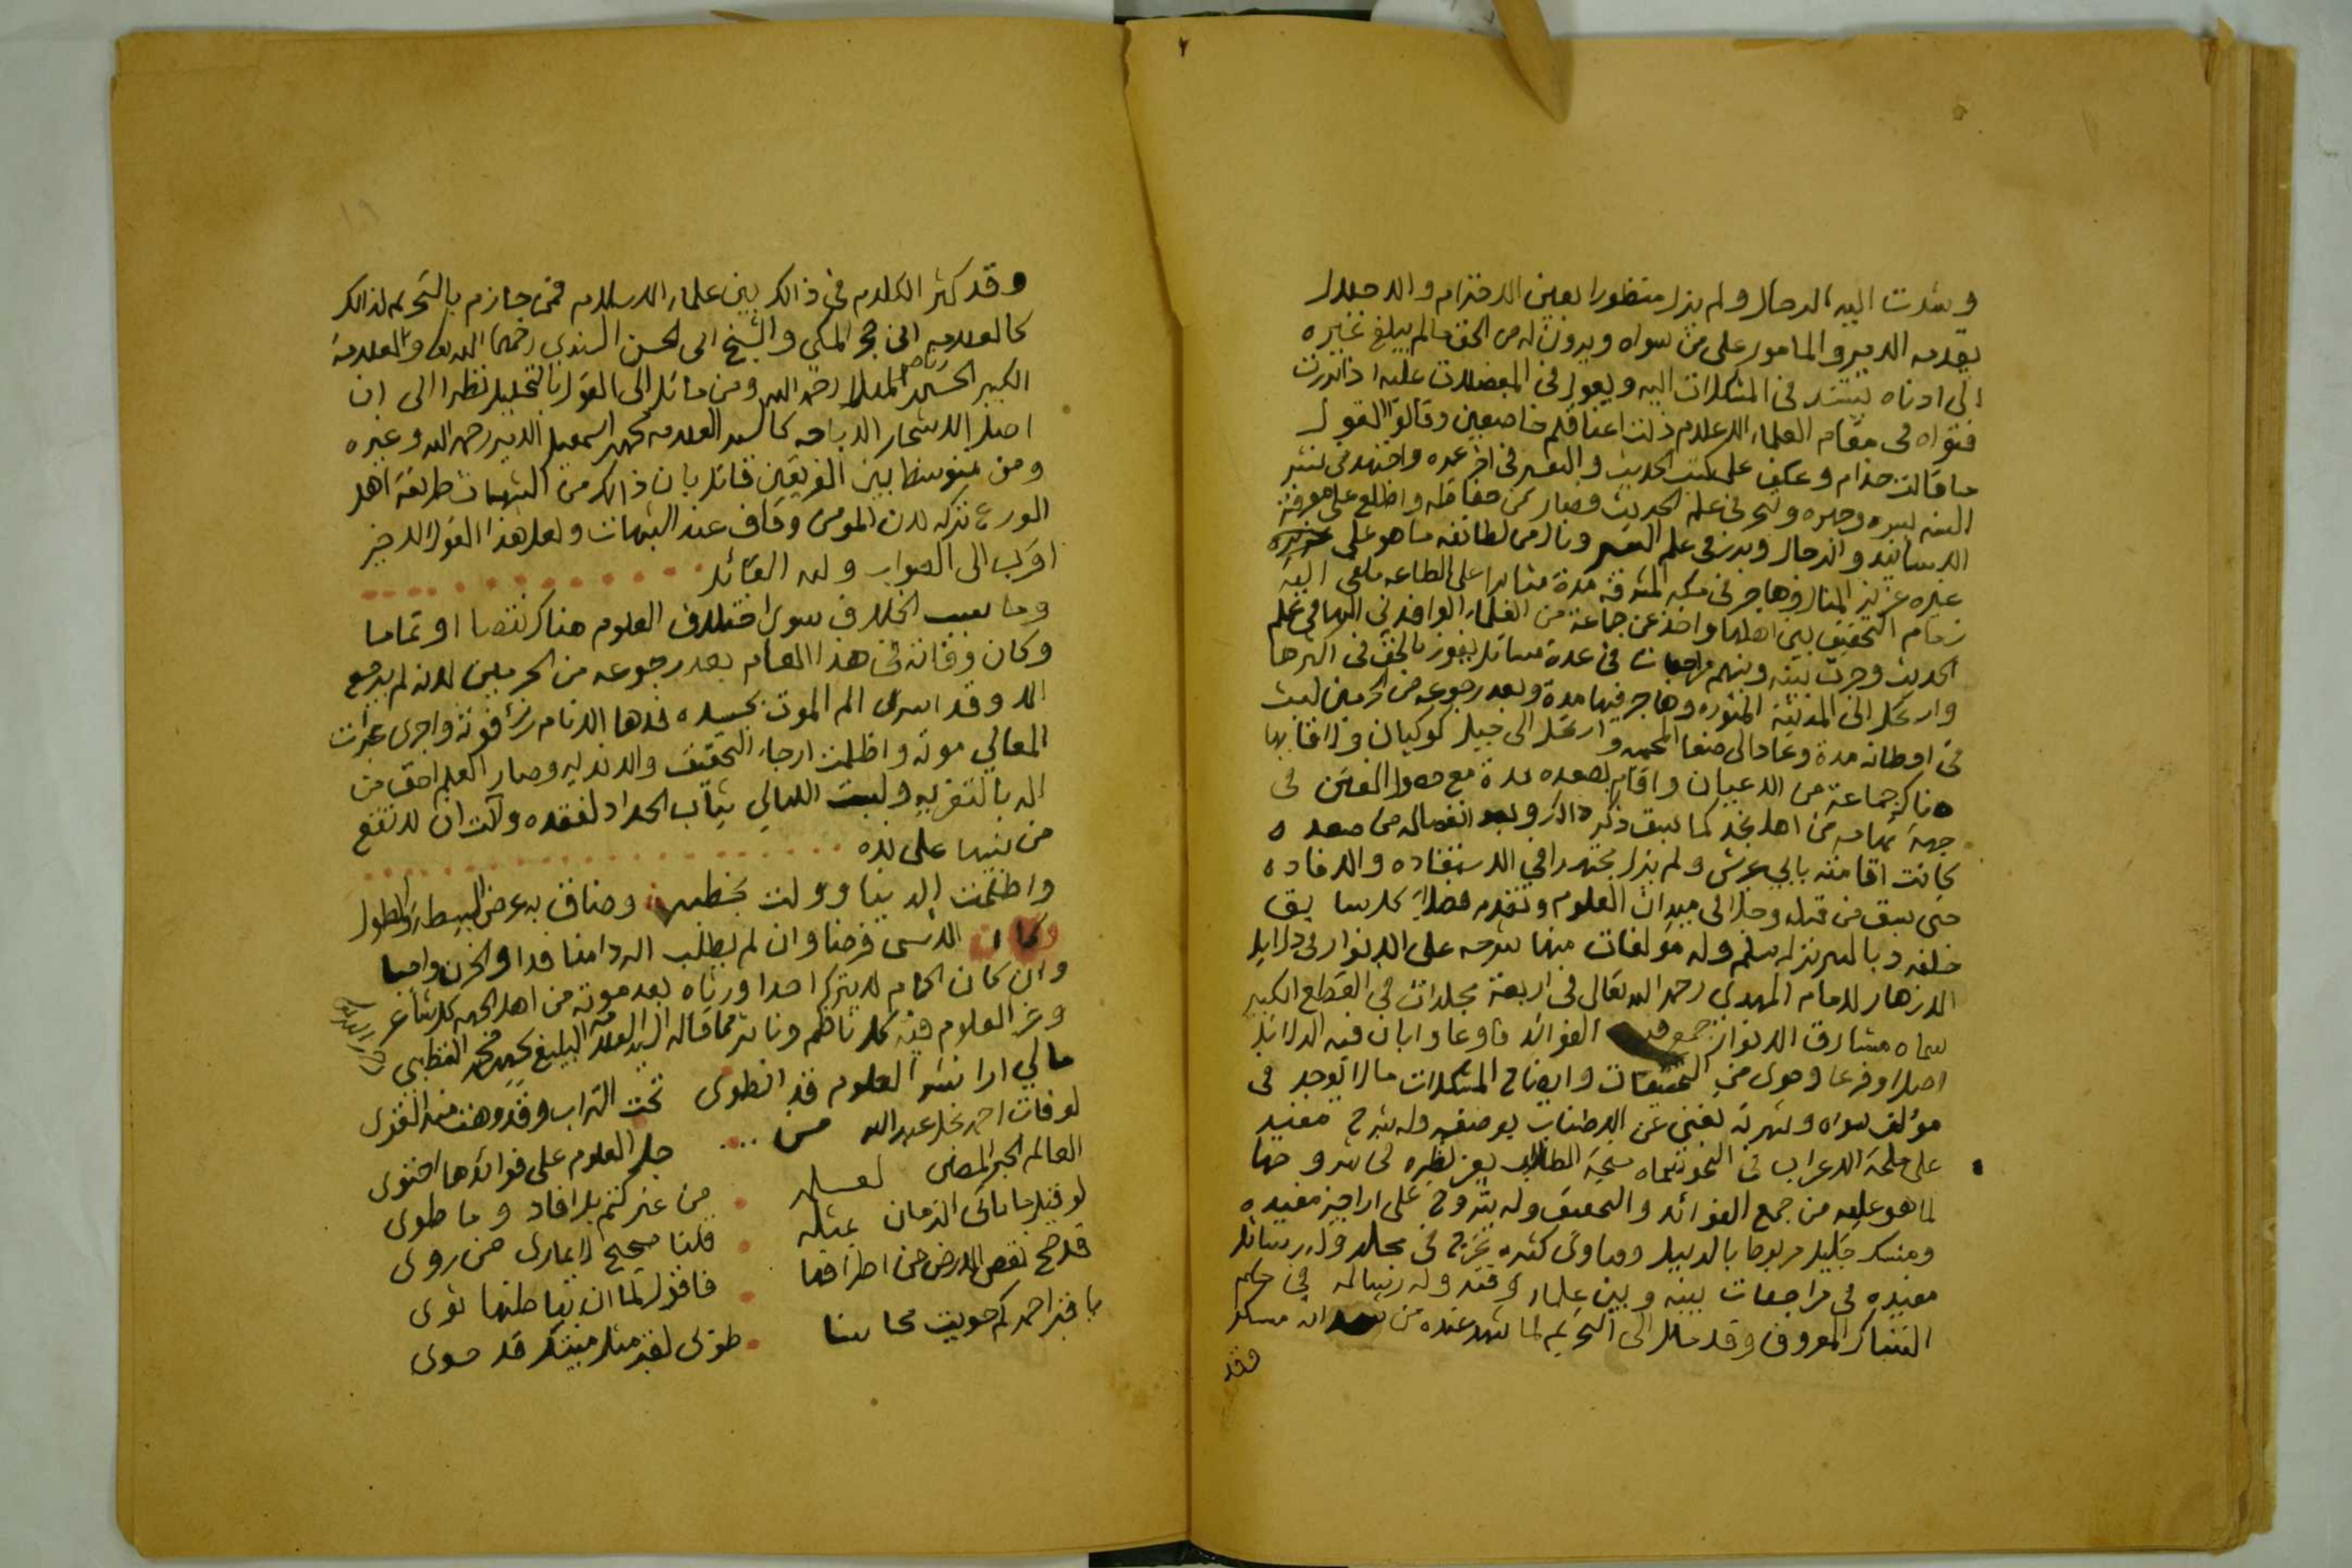 وشدت اليه الرحال ولم يزل منظورا بعين الاحترام والاجلال
يقدمه الامير والمامور على من سواه ويرون له من الحق ما لم يبلغ غيره
الى ادناه يستند في المشكلات اليه ويعول في المعضلات عليه اذا برزت
فتواه في مقام العلماء الاعلام ذلت اعناقهم خاضعين وقالوا القول
ما قالت حذام وعكف على كتب الحديث والتفسير في اخر عمره واجتهد في نشر
السنه ليله وتبحر في علم الحديث وصار من حفاظه واطلع على معرفة
الاسانيد والرجال وبرز في علم التفسير ونال من لطائفه ما هو على
غيره عزيز المنال وهاجر في مكه المشرفة مدة مثابرا على الطاعه ملقى اليه
زمام التحقيق بين اهلها واخذ عن جماعة من العلماء الوافدين اليها في علم
الحديث وجرت بينه وبينهم مراجعات في عدة مسائل يفوز بالحق في اكثرها
وارتحل الى المدينة المنوره وهاجر فيها مدة وبعد رجوعه من الحرمين لبث
في اوطانه مدة وعاد الى صنعا المحميه وارتحل الى جبل كوكبان ورافا بها
هناك جماعة من الاعيان واقام بصعده مدة مع حصول الفتن في
جهة تهامه من اهل نجد كما سبق ذكر ذالك وبعد انفصاله من صعده
كانت اقامته بابي عريش ولم يزل مجتهدا في الاستفاده والافاده
حتى سبق من قبله وجلا في ميدان العلوم وتقدم فضلا كل سابق
خلفه وله مؤلفات منها شرحه على الانوار في دلايل
الازهار للامام المهدي رحمه الله تعالى في اربعة مجلدات في القطع الكبير
سماه مشارق الانوار جمع فيه الفوائد فاوعا وابان فيه الدلائل
اصلا وفرعا وحوى من التحقيقات وايضاح المشكلات ما لا يوجد في
مؤلف سواه وشهرته تغني عن الاطناب بوصفه وله شرح مفيد
على ملحة الاعراب في النحو سماه منحة الطلاب يعز نظيره في شروحها
لما هو عليه من جمع الفوائد والتحقيق وله شروح على اراجيز مفيده
ومنسك جليل مربوطا بالدليل وفتاوى كثيره تخرج في مجلد وله رسائل
مفيده في مراجعات بينه وبين علماء وقته وله رسالة في حكم
التنباك المعروف وقد مال الى التحريم لما شهد عنده من انه مسكر
وقد
وقد كثر الكلام في ذالك بين علماء الاسلام فمن جازم بالتحريم لذالك
كالعلامه ابن حجر المكي والشيخ ابي الحسن السندي رحمهما الله والعلامة
الكبير الحسين بن ناصر المهلا رحمه الله ومن مائل الى القول بالتحليل نظرا الى ان
اصل الاشجار الاباحه كالسيد العلامه محمد بن اسمعيل الامير رحمه الله وغيره
ومن متوسط بين الفريقين قائل بان ذالك من الشبهات طريقة اهل
الورع تركه لان المومن وقاف عند الشبهات ولعل هذا القول الاخير
اقرب الى الصواب ولله القائل
وما سبب الخلاف سوى اختلاف العلوم هناك نقصا او تماما
وكان وفاته في هذا العام بعد رجوعه من الحرمين لانه لم يرجع
الا وقد اسرى الم الموت بجسده فدها الانام رزؤ فوته واجرى عبرات
المعالي موته واظلمت ارجاء التحقيق والتدريس وصار العلم احق من
اله بالتعزيه ولبست الليالي ثياب الحداد لفقده وآلت ان لا تقع
من بنيها على نده
واظلمت الدنيا وولت بخطبه وضاق به عرض البسيطه والطول
وكان الاسى فرضا وان لم يطلب الردا منا فدا والحزن واجبا
وان كان الحمام لا يترك احدا ورثاه بعد موته من اهل الجهه كل شاعر
وغرر الكلام فيه كل ناظم وناثر مما قاله السيد العلامة البليغ محسن بن محمد القطبي
مالي ارا نشر العلوم قد انطوى تحت التراب وقد وهت منه القوى
لوفات احمد نجل عبد الله من ... جل العلوم على فوائدها احتوى
العالم الحبر من غير كتم بل افاد وما طوى
لو قيل ما يأتي الزمان بمثله قلنا صحيح لا يمارى من روى
قد صح نقص الارض من اطرافها فاقول لما ان بباطنها ثوى
يا قبر احمد كم حويت محاسنا طوبى لقبر مثل ميتك قد حوى